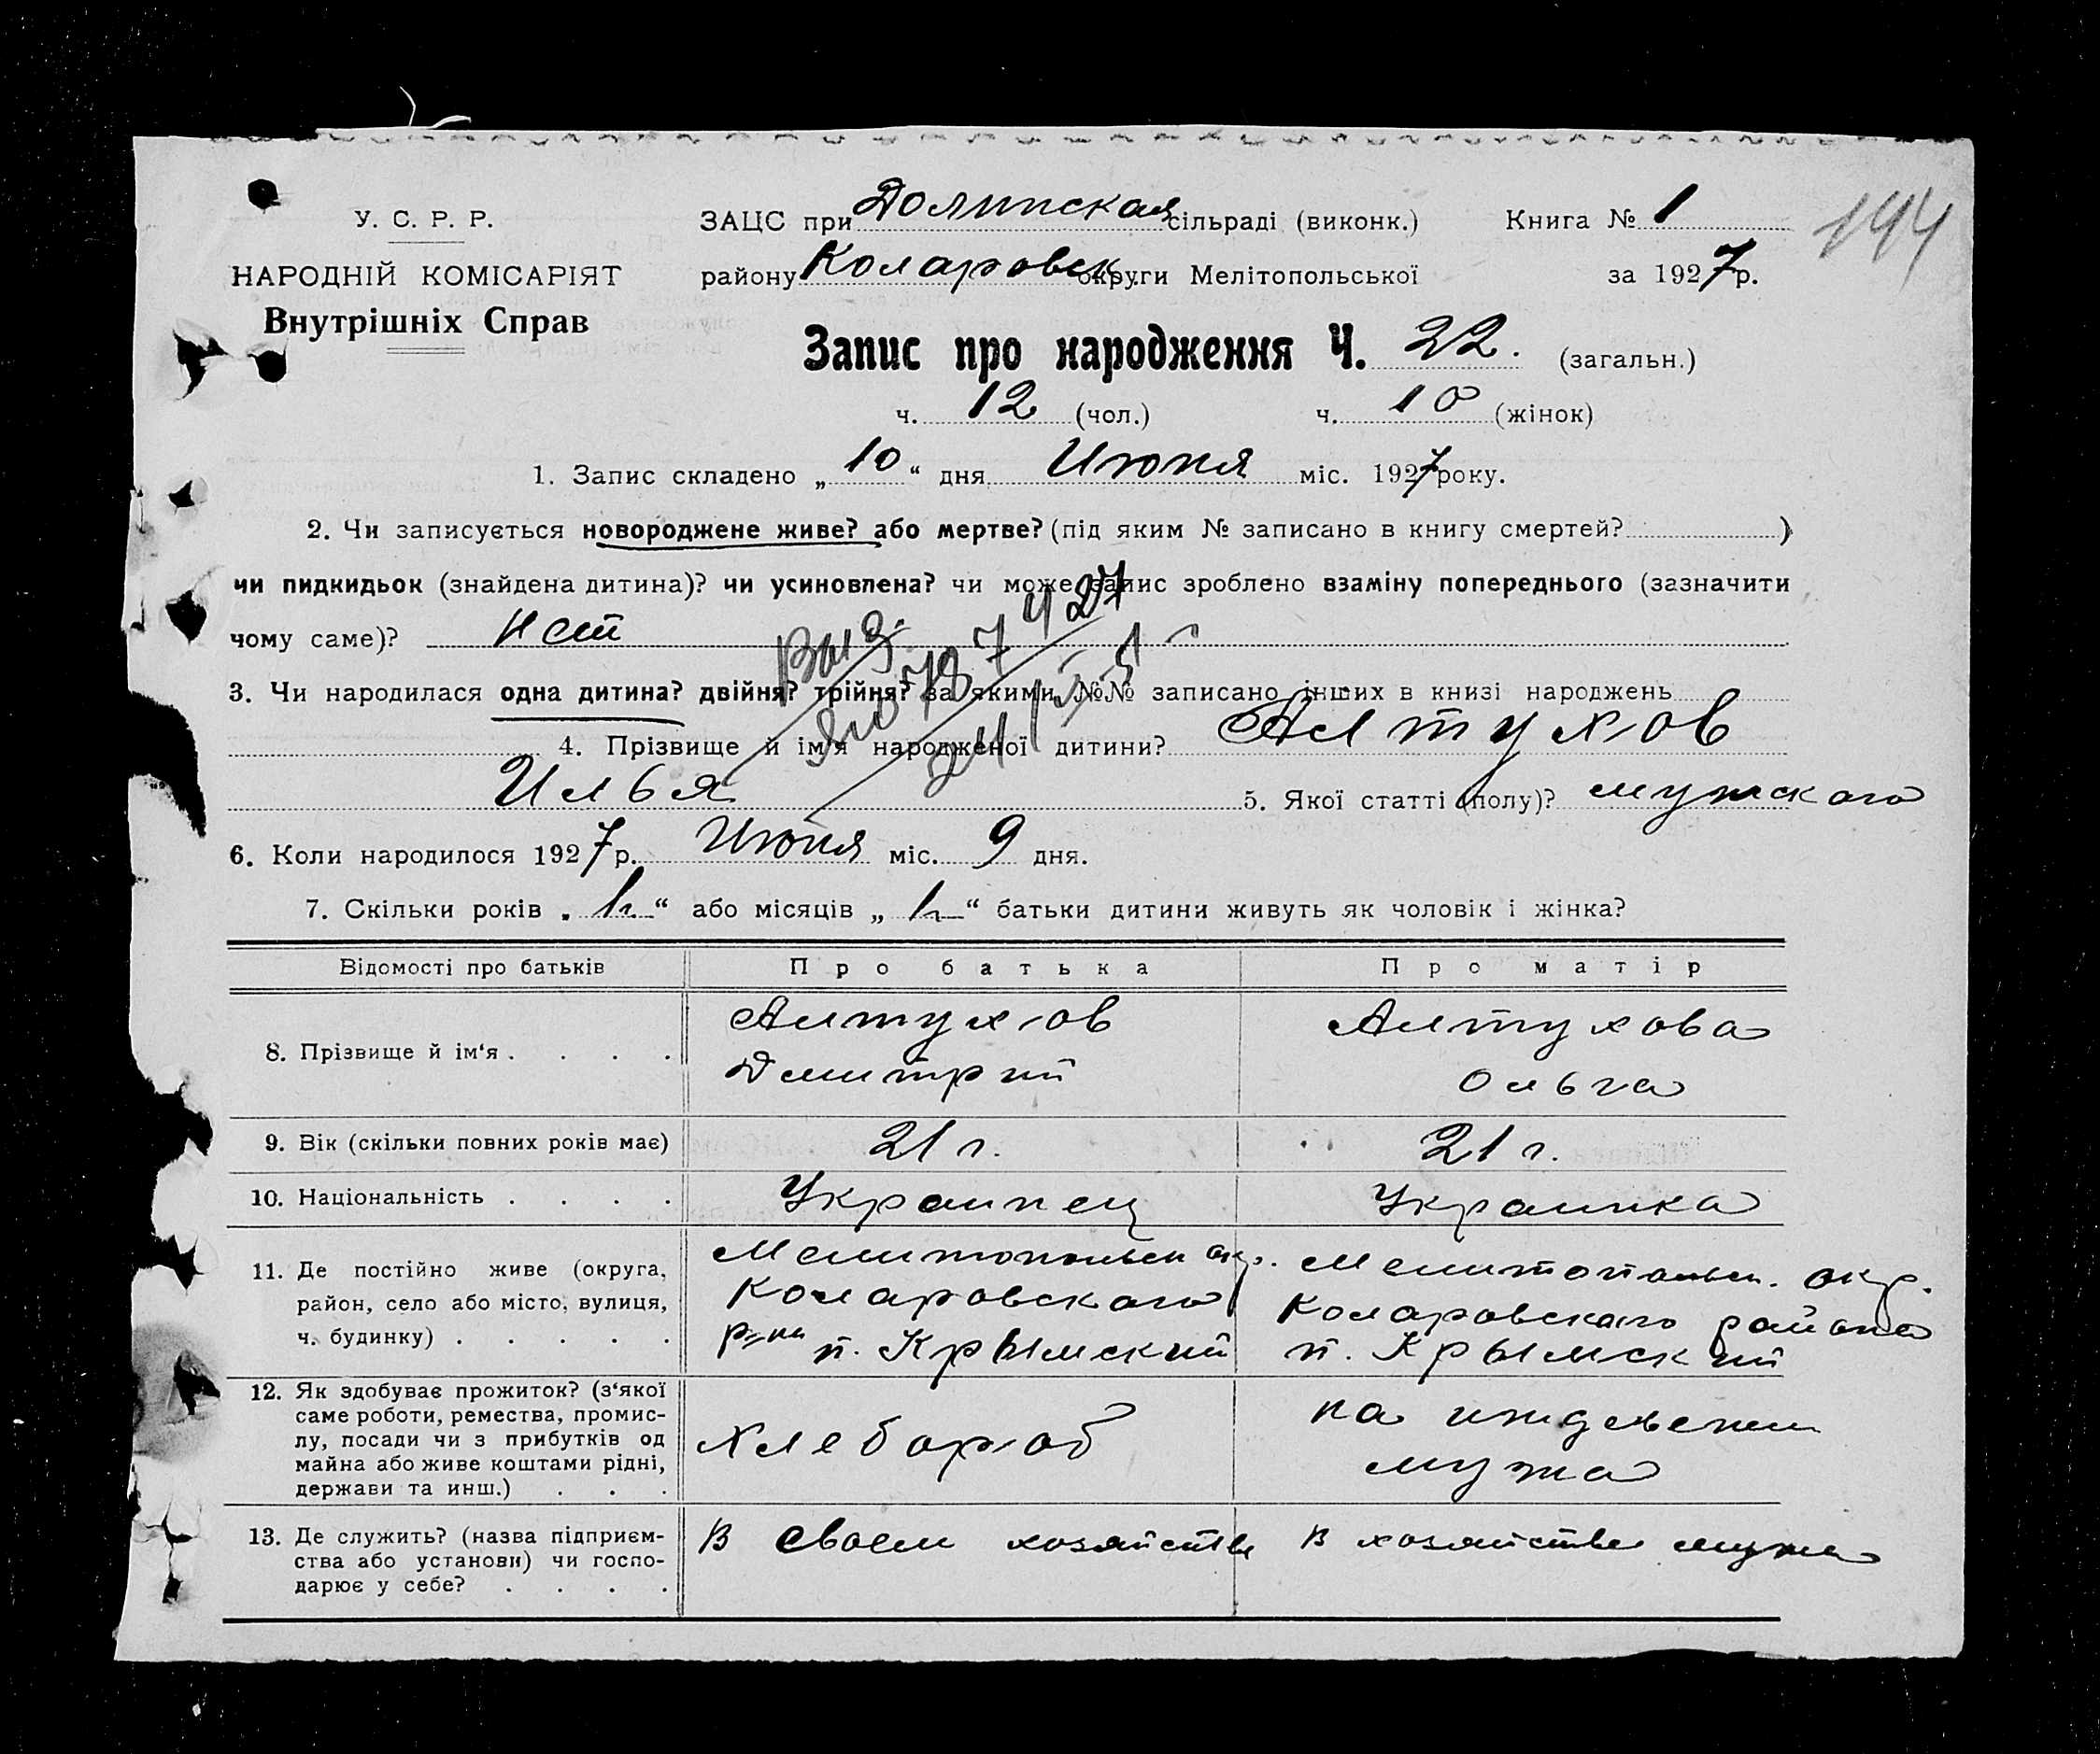 У. С. Р. Р.
НАРОДНІЙ КОМІСАРІЯТ
Внутрішніх Справ
ЗАЦС при Долинская сільраді (виконк.) Книга № 1
144
району Коларовск округи Мелітопольської за 1927 р.
Запис про народження Ч. 22. (загальн.)
ч. 12 (чол.) ч. 10 (жінок)
1. Запис складено „ 10 “ дня Июня міс. 1927 року.
2. Чи записується новороджене живе? або мертве? (під яким № записано в книгу смертей? )
чи пидкидьок (знайдена дитина)? чи усиновлена? чи може запис зроблено взаміну попереднього (зазначити
чому саме)? нет
3. Чи народилася одна дитина? двійня? трійня? за якими №№ записано інших в книзі народжень
4. Прізвище й ім'я народженої дитини? Алтухов
Илья 5. Якої статті (полу)? мужского
6. Коли народилося 1927 р. Июня міс. 9 дня.
7. Скільки років „ “ або місяців „ “ батьки дитини живуть як чоловік і жінка?
Відомості про батьків Про батька Про матір
8. Прізвище й ім'я . . . . Алтухов Дмитрий Алтухова Ольга
9. Вік (скільки повних років має) 21 г. 21 г.
10. Національність . . . . Украинец Украинка
11. Де постійно живе (округа, Мелитопольск окр. Мелитопольск. окр.
район, село або місто, вулиця, Коларовского Коларовского района
ч. будинку) . . . . . р-на п. Крымский п. Крымский
12. Як здобуває прожиток? (з'якої
саме роботи, ремества, промис- на иждевении
лу, посади чи з прибутків од Хлебороб
майна або живе коштами рідні, мужа
держави та инш.) . . .
13. Де служить? (назва підприєм- В своем хозяйстве В хозяйстве мужа
ства або установи) чи госпо-
дарює у себе? . . . .